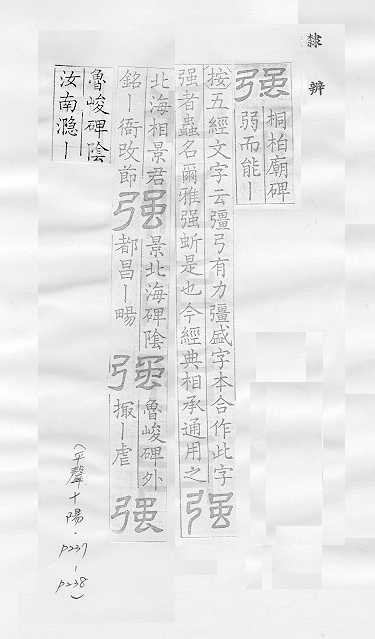 隸辨
强 桐柏廟碑
弱而能ー
按五經文字云彊弓有力彊盛字本合作此字
强者蟲名爾雅强蚚是也今經典相承通用之 强
北海相景君
銘ー衙改節 强 景北海碑陰
都昌ー暘 强 魯峻碑外
撮ー虐 强
魯峻碑陰
汝南㶏ー
(平聲十陽·P237-P238)